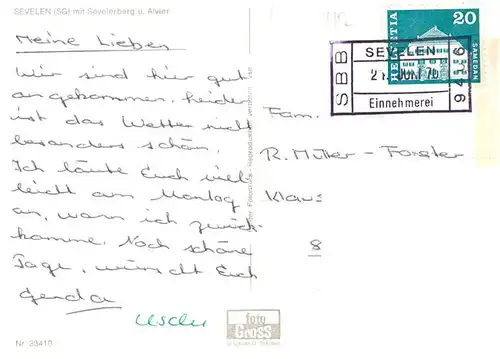 SEVELEN (SG) mit Sevelerberg u. Alvier
Meine Lieben
Wir sind hier gut
angekommen, leider
ist das Wetter nicht
besonders schön.
Ich läute Euch viel-
leicht am Montag
an, wann ich zurück-
komme. Noch schöne
Tage, wünscht Euch
Gerda
Uschi
Nr. 23410
foto
GROSS
HELVETIA
20
SAMEDAN
SBB
SEVELEN
21. JUNI 70
Einnehmerei
9416
Fam.
R. Müller - Forster
Klaus
8